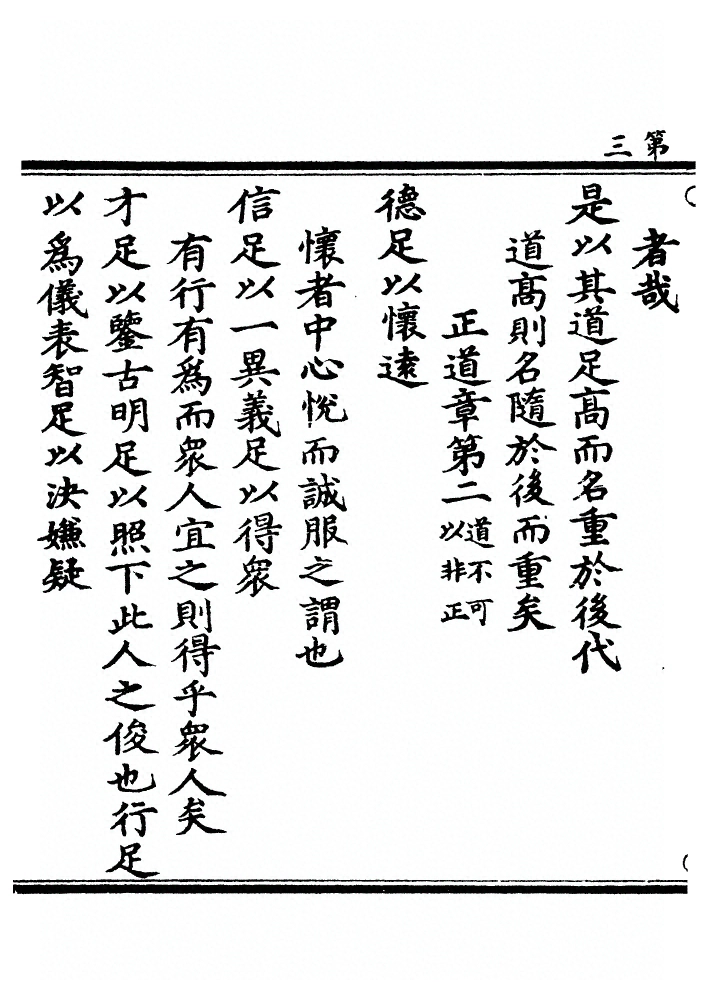 第三
者哉
是以其道足高而名重於後代
道高則名隨於後而重矣
正道章第二道不可以非正
德足以懷遠
懷者中心悅而誠服之謂也
信足以一異義足以得衆
有行有為而衆人宜之則得乎衆人矣
才足以鑒古明足以照下此人之俊也行足
以為儀表智足以決嫌疑